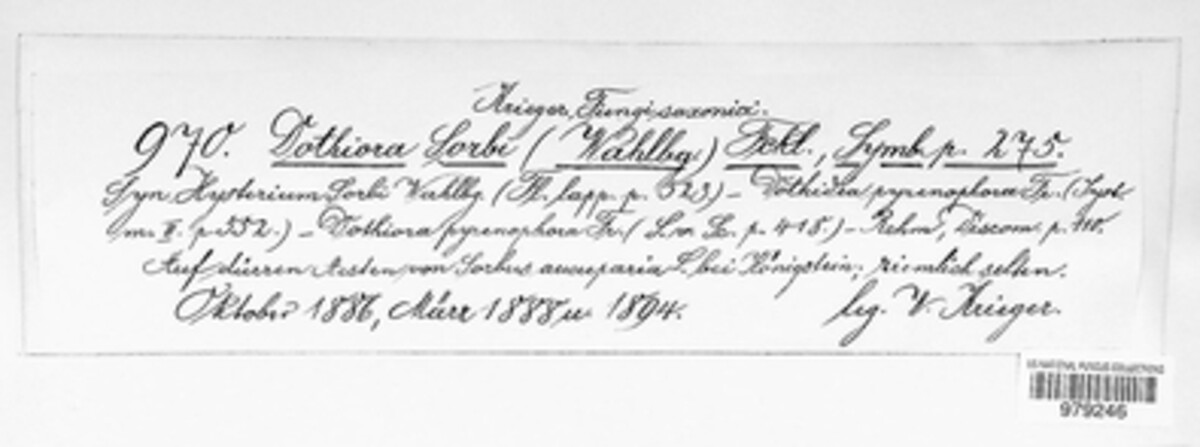 Krieger, Fungi saxonici.
970. Dothiora Sorbi (Wahlbg.) Fckl., Symb. p. 275.
Syn. Hysterium Sorbi Wahlbg. (Fl. lapp. p. 523) – Dothidea pyrenophora Fr. (Syst.
m. II. p. 552.) – Dothiora pyrenophora Fr. ( S. v. S. p. 418.) – Rehm, Discom. p. 110.
Auf dürren Aesten von Sorbus aucuparia L. bei Königstein; ziemlich selten.
Oktober 1886, März 1888 u. 1894.
leg. W. Krieger.
US NATIONAL FUNGUS COLLECTIONS
979246